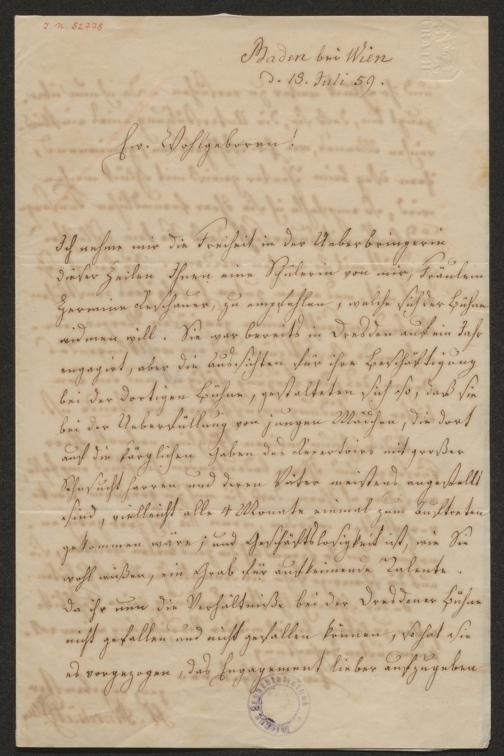 J. N. 52778
Baden bei Wien
d. 13. Juli 59.
Ew. Wohlgeboren!
Ich nehme mir die Freiheit in der Ueberbringerin
dieser Zeilen Ihnen eine Schülerin von mir, Fräulein
Hermine zu empfehlen, welche sich der Bühne
widmen will. Sie war bereits in Dresden auf ein Jahr
engagirt, aber die Aussichten für ihre Beschäftigung
bei der dortigen Bühne, gestalteten sich so, daß sie
bei der Ueberfüllung von jungen Mädchen, die dort
auf die kärglichen Gaben des Repertoirs mit großer
Sehnsucht harren und deren Väter meistens angestellt
sind, vielleicht alle 4 Monate einmal zum Auftreten
gekommen wäre; und Geschäftslosigkeit ist, wie Sie
wohl wißen, ein Grab für aufkeimende Talente.
Da ihr nun die Verhältniße bei der Dresdener Bühne
nicht gefallen und nicht gefallen können, so hat sie
es vorgezogen, das Engagement lieber aufzugeben